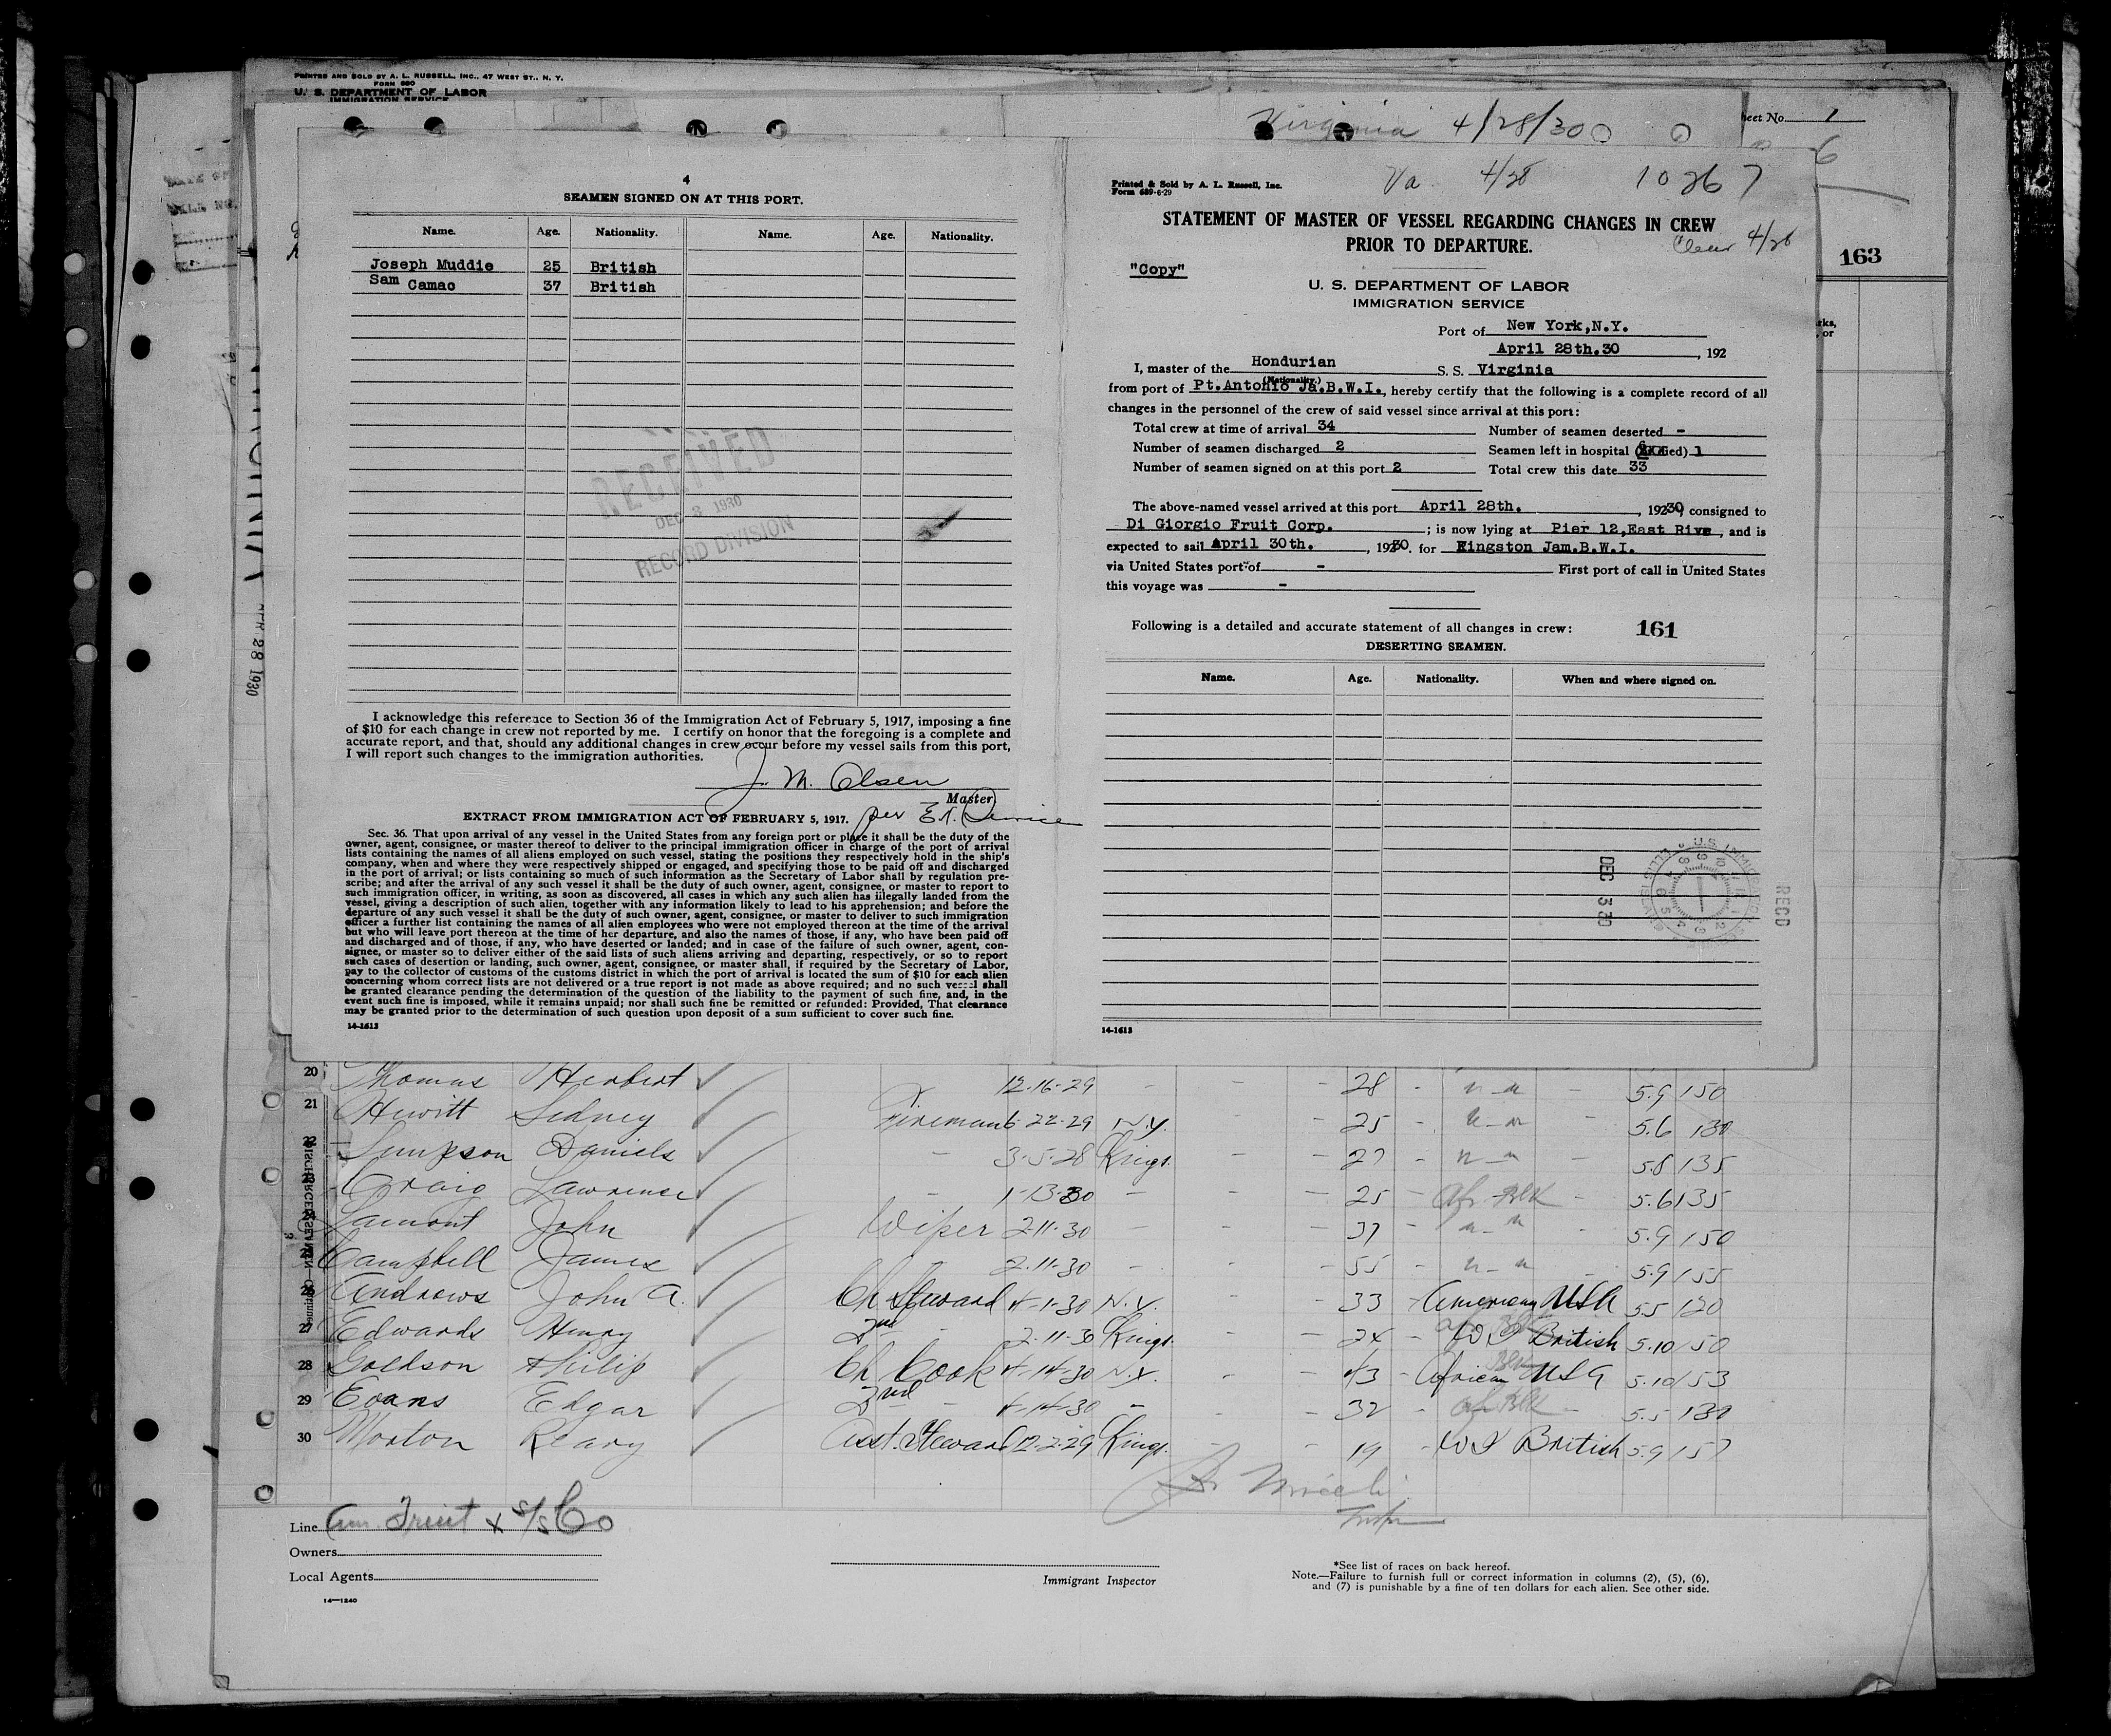 PRINTED AND SOLD BY A. L. RUSSELL, INC., 47 WEST ST., N. Y.
FORM 680
U. S. DEPARTMENT OF LABOR
IMMIGRATION SERVICE
Virginia 4/28/30
Sheet No. 1
163
4
SEAMEN SIGNED ON AT THIS PORT.
Name. Age. Nationality. Name. Age. Nationality.
Joseph Muddie 25 British
Sam Camac 37 British
RECEIVED
DEC 3 1930
RECORD DIVISION
I acknowledge this reference to Section 36 of the Immigration Act of February 5, 1917, imposing a fine
of $10 for each change in crew not reported by me. I certify on honor that the foregoing is a complete and
accurate report, and that, should any additional changes in crew occur before my vessel sails from this port,
I will report such changes to the immigration authorities.
J. M. Olsen
Master
per
EXTRACT FROM IMMIGRATION ACT OF FEBRUARY 5, 1917.
Sec. 36. That upon arrival of any vessel in the United States from any foreign port or place it shall be the duty of the
owner, agent, consignee, or master thereof to deliver to the principal immigration officer in charge of the port of arrival
lists containing the names of all aliens employed on such vessel, stating the positions they respectively hold in the ship's
company, when and where they were respectively shipped or engaged, and specifying those to be paid off and discharged
in the port of arrival; or lists containing so much of such information as the Secretary of Labor shall by regulation pre-
scribe; and after the arrival of any such vessel it shall be the duty of such owner, agent, consignee, or master to report to
such immigration officer, in writing, as soon as discovered, all cases in which any such alien has illegally landed from the
vessel, giving a description of such alien, together with any information likely to lead to his apprehension; and before the
departure of any such vessel it shall be the duty of such owner, agent, consignee, or master to deliver to such immigration
officer a further list containing the names of all alien employees who were not employed thereon at the time of the arrival
but who will leave port thereon at the time of her departure, and also the names of those, if any, who have been paid off
and discharged and of those, if any, who have deserted or landed; and in case of the failure of such owner, agent, con-
signee, or master so to deliver either of the said lists of such aliens arriving and departing, respectively, or so to report
such cases of desertion or landing, such owner, agent, consignee, or master shall, if required by the Secretary of Labor,
pay to the collector of customs of the customs district in which the port of arrival is located the sum of $10 for each alien
concerning whom correct lists are not delivered or a true report is not made as above required; and no such vessel shall
be granted clearance pending the determination of the question of the liability to the payment of such fine, and, in the
event such fine is imposed, while it remains unpaid; nor shall such fine be remitted or refunded: Provided, That clearance
may be granted prior to the determination of such question upon deposit of a sum sufficient to cover such fine.
14-1613
Printed & Sold by A. L. Russell, Inc.
Form 689-6-29
Va. 4/28 10267
STATEMENT OF MASTER OF VESSEL REGARDING CHANGES IN CREW
PRIOR TO DEPARTURE.
Clear 4/28
"Copy"
U. S. DEPARTMENT OF LABOR
IMMIGRATION SERVICE
Port of New York,N.Y.
April 28th.30, 192
I, master of the Hondurian S. S. Virginia
(Nationality.)
from port of Pt.Antonio Ja.B.W.I., hereby certify that the following is a complete record of all
changes in the personnel of the crew of said vessel since arrival at this port:
Total crew at time of arrival 34 Number of seamen deserted -
Number of seamen discharged 2 Seamen left in hospital 1
Number of seamen signed on at this port 2 Total crew this date 33
The above-named vessel arrived at this port April 28th., 19230, consigned to
Di Giorgio Fruit Corp.; is now lying at Pier 12,East Rive, and is
expected to sail April 30th., 19230. for Kingston Jam.B.W.I.
via United States port of - First port of call in United States
this voyage was -
Following is a detailed and accurate statement of all changes in crew: 161
DESERTING SEAMEN.
Name. Age. Nationality. When and where signed on.
DEC 3 30
RECD
14-1613
APR 28 1930
20 Thomas Herbert 12-16-29 - - - 28 - " - " - 5.9 150
21 Hewitt Sidney Fireman 6-22-29 N.Y. - - 25 - " - " 5.6 130
22 Simpson Daniels - 3-5-28 Kings. - - 27 - " - " - 5.8 135
Craig Lawrence - 1-13-30 - - - 25 - Af. Blk - 5.6 135
Lamont John Wiper 2-11-30 - - - 37 - " - " 5.9 150
Campbell James - 2-11-30 - - - 55 - " - " - 5.9 155
26 Andrews John A. Ch Steward 4-1-30 N.Y. - - 33 - American USA 5.5 120
27 Edwards Henry 2nd - 2-11-30 Kings. - - 24 - W I British 5.10 150
28 Goldson Philip Ch Cook 4-14-30 N.Y. - - 43 - African Blk USA 5.10 153
29 Evans Edgar 2nd - 4-14-30 - - - 32 - Af Blk - 5.5 130
30 Morton Asst. Steward 12-2-29 Kings. - - 19 - W I British 5.9 157
Line Am. Fruit & S/S Co
Owners
Local Agents
14-1240
Immigrant Inspector
*See list of races on back hereof.
Note.—Failure to furnish full or correct information in columns (2), (5), (6),
and (7) is punishable by a fine of ten dollars for each alien. See other side.